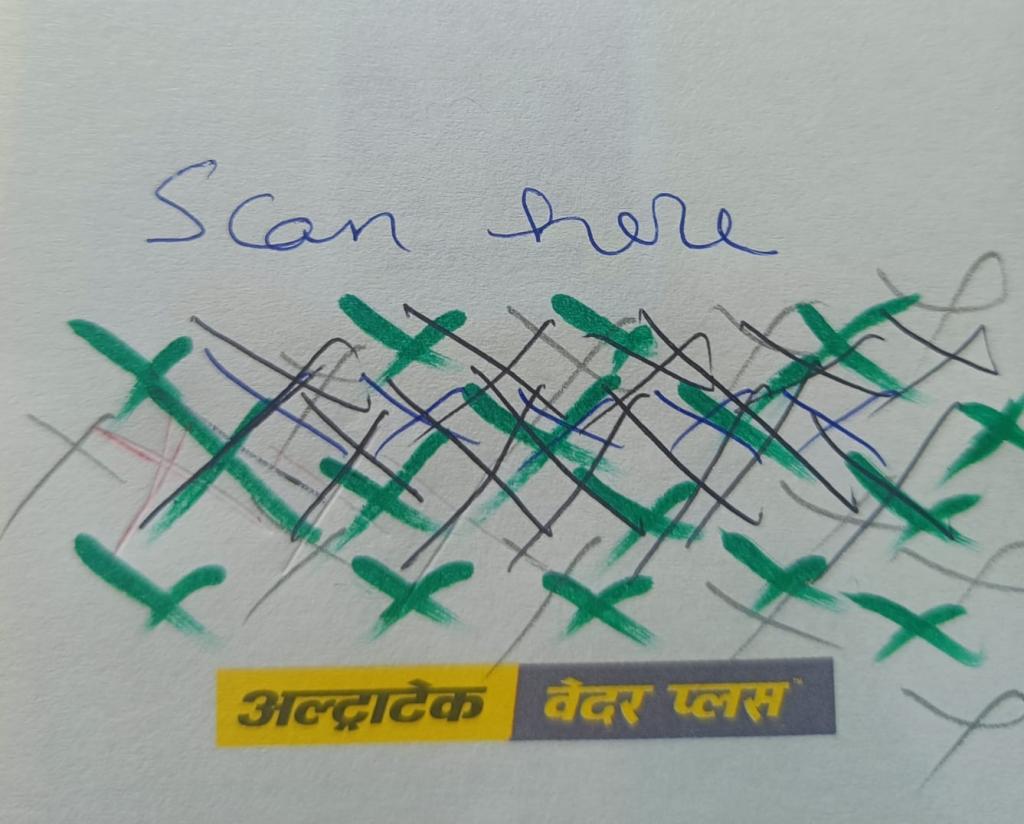 Scan here
अल्ट्राटेक वेदर प्लस™